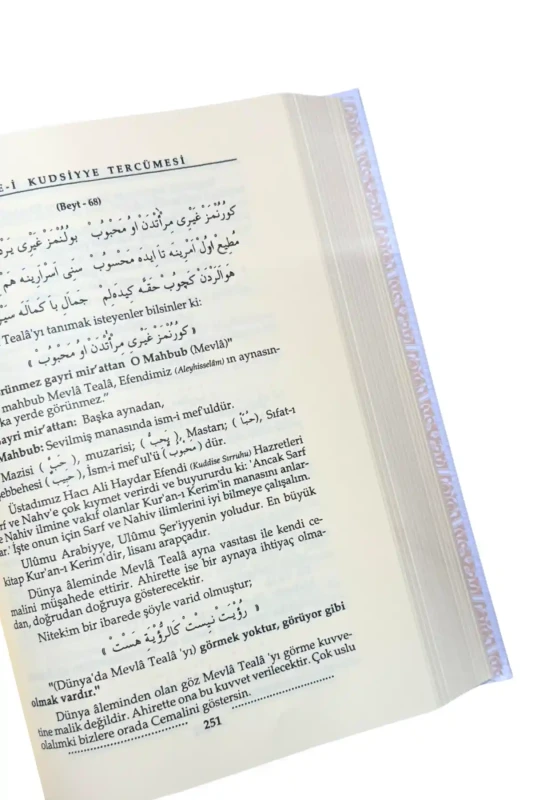 E-İ KUDSİYYE TERCÜMESİ
(Beyt - 68)
كورُنْمَزْ غَيْرِى مِرْاٰتْدَنْ اُو مَحْبُوبْ بولُنْمَزْ غَيْرِى
مُطِيعْ اُولْ اَمْرِينَه تَا اَيدَه مَحْسُوبْ سَنِى اَسْرَارِينَه هَمْ
هَوَالَرْدَنْ كَچُوبْ حَقَّه كِيدَه لِمْ جَمَالِ بَا كَمَالَه
Tealâ'yı tanımak isteyenler bilsinler ki:
« كُورُنْمَزْ غَيْرِى مِرْاٰتْدَنْ اُو مَحْبُوبْ »
rünmez gayri mir'attan O Mahbub (Mevlâ)"
mahbub Mevlâ Tealâ, Efendimiz (Aleyhisselâm) ın aynasın-
ka yerde görünmez."
ayri mir'attan: Başka aynadan,
Mahbub: Sevilmiş manasında ism-i mef'uldür.
Mazisi ( حَبَّ ), muzarisi; ( يَحِبُّ ), Mastarı; ( حُبًّا ), Sıfat-ı
ebbehesi ( حَبِيبٌ ), İsm-i mef'ulü ( مَحْبُوبٌ ) dür.
Üstadımız Hacı Ali Haydar Efendi (Kuddise Sırruhu) Hazretleri
rf ve Nahv'e çok kıymet verirdi ve buyururdu ki: 'Ancak Sarf
e Nahiv ilmine vakıf olanlar Kur'an-ı Kerim'in manasını anlar-
ar.' İşte onun için Sarf ve Nahiv ilimlerini iyi bilmeye çalışalım.
Ulûmu Arabiyye, Ulûmu Şer'iyyenin yoludur. En büyük
kitap Kur'an-ı Kerim'dir, lisanı arapçadır.
Dünya âleminde Mevlâ Tealâ ayna vasıtası ile kendi ce-
malini müşahede ettirir. Ahirette ise bir aynaya ihtiyaç olma-
dan, doğrudan doğruya gösterecektir.
Nitekim bir ibarede şöyle varid olmuştur;
« رُؤْيَتْ نِيسْتْ كَالرُّؤْيَةِ هَسْتْ »
"(Dünya'da Mevlâ Tealâ 'yı) görmek yoktur, görüyor gibi
olmak vardır."
Dünya âleminden olan göz Mevlâ Tealâ 'yı görme kuvve-
tine malik değildir. Ahirette ona bu kuvvet verilecektir. Çok uslu
olalımki bizlere orada Cemalini göstersin.
251